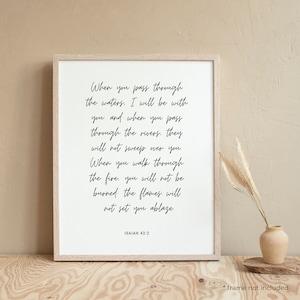 When you pass through
the waters, I will be with
you and when you pass
through the rivers, they
will not sweep over you.
When you walk through
the fire, you will not be
burned, the flames will
not set you ablaze.
ISAIAH 43:2
* frame not included